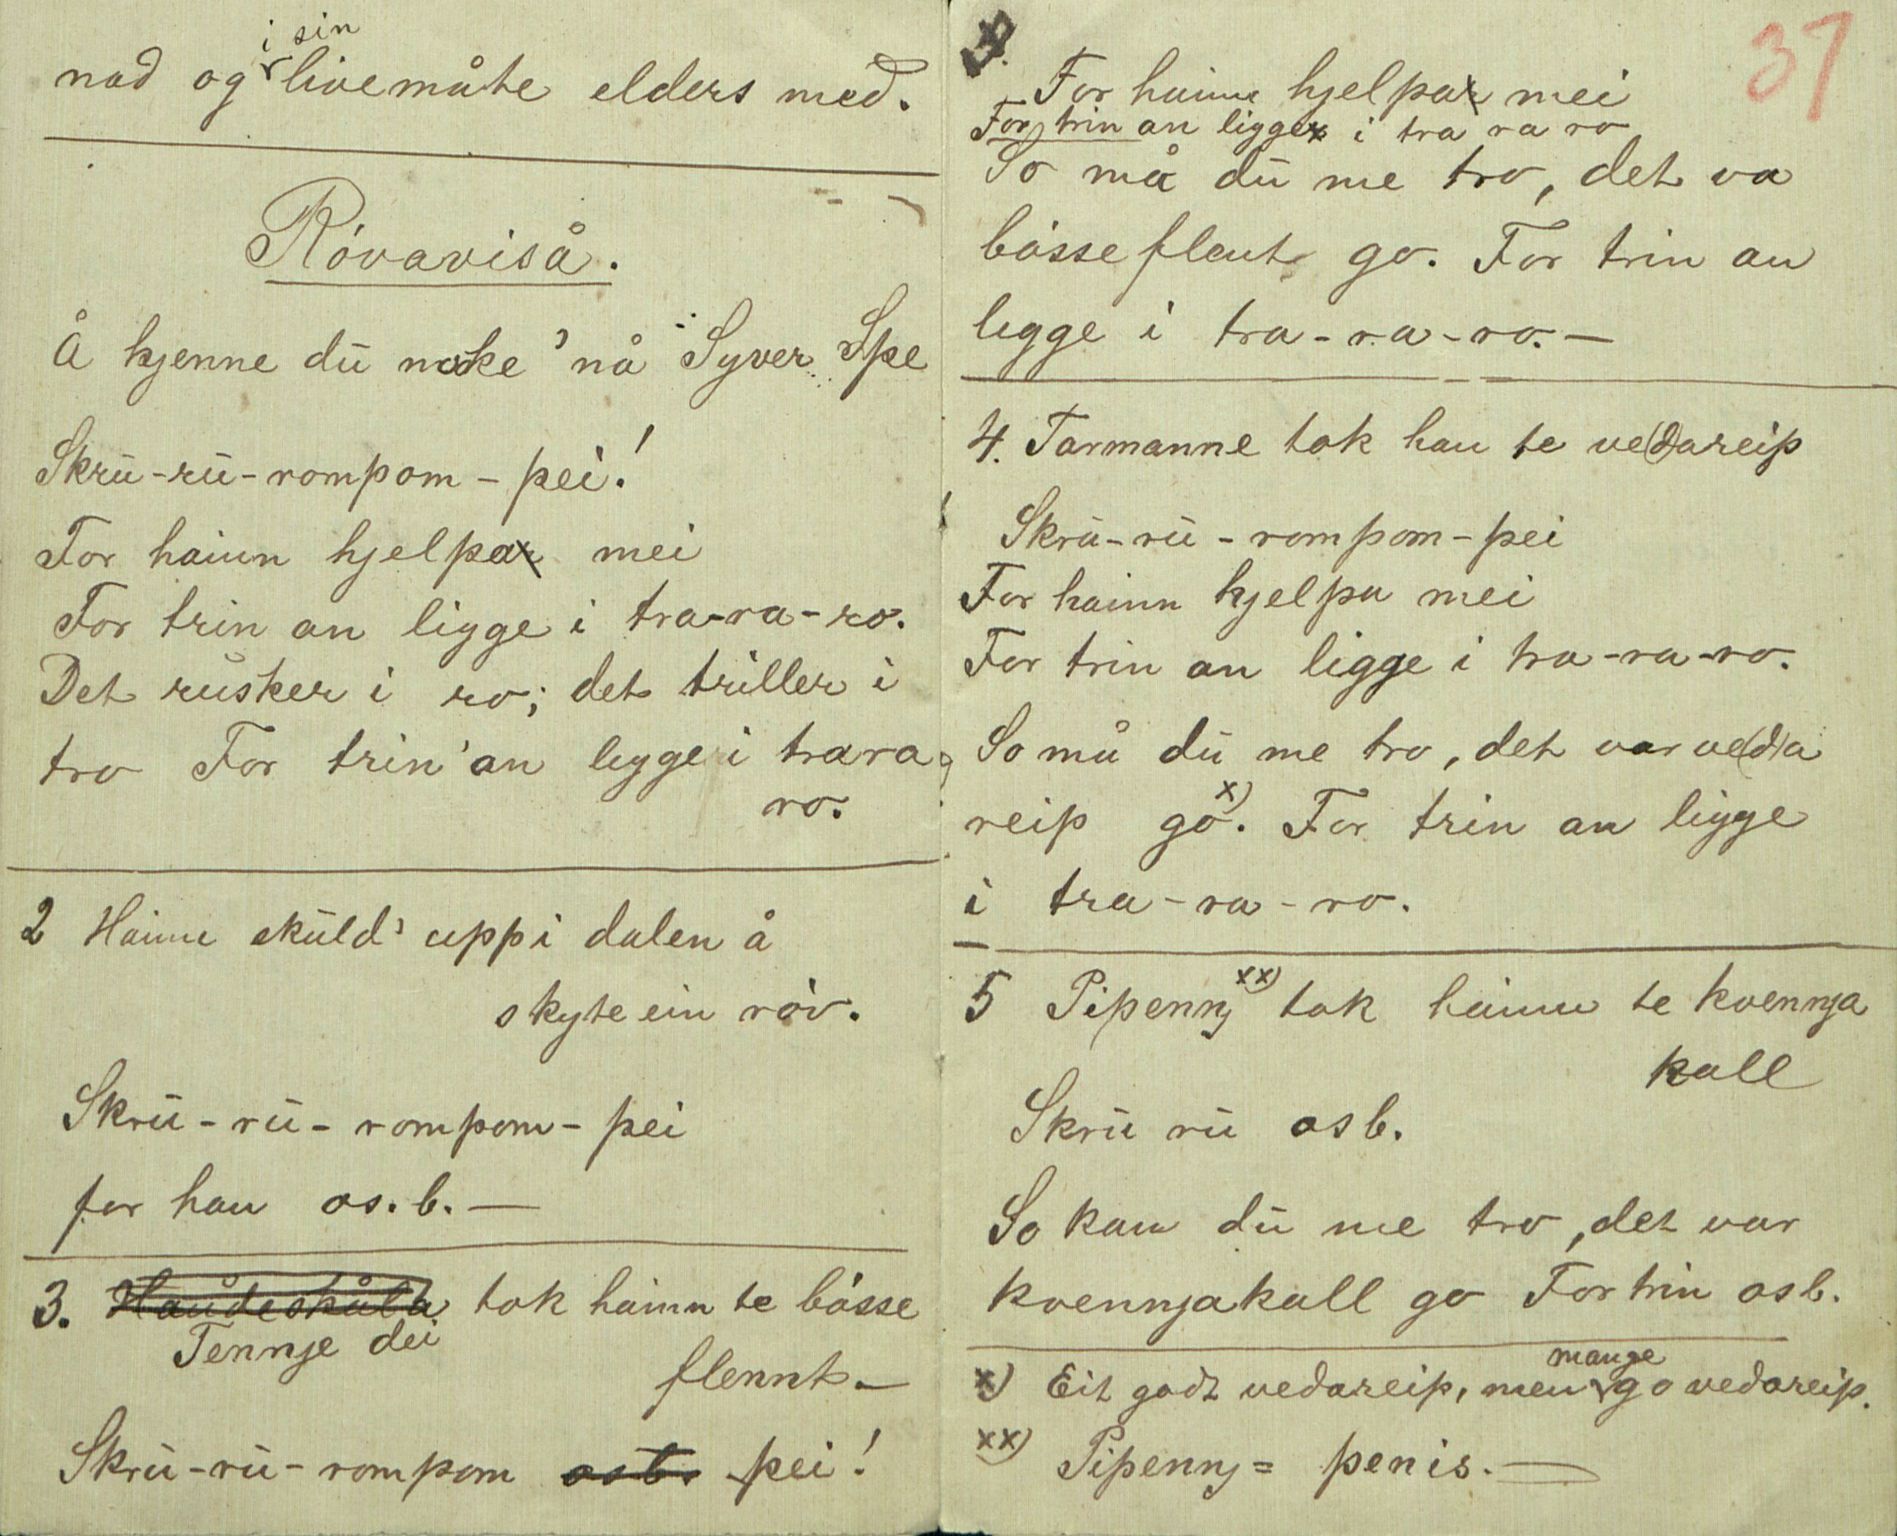 nad og i sin livemåte elders med.
Róvaviså.
Å kjenne dū noke' nå Syver Spe
Skrū-rū-rompom-pei!
For hainn hjelpa mei
For trin an ligge i tra-ra-ro.
Det rusker i ro; det triller i
tro For trin'an ligge i trara
ro.
2 Hainn skūld' uppi dalen å
skyte ein róv.
Skrū-rū-rompom-pei
for han os.b. —
3. Haudeskålå tok hainn te bósse
Tennje dei
flennt. —
Skrū-rū-rompom osb. pei!
37
3.
For hainn hjelpa mei
For trin an ligge i tra ra ro
So må dū me tro, det va
bósseflent go. For trin an
ligge i tra-ra-ro. —
4. Tarmanne tok han te ve(d)areip
Skrū-rū-rompom-pei
For hainn hjelpa mei
For trin an ligge i tra-ra-ro.
So må dū me tro, det var ve(d)a
reip go x). For trin an ligge
i tra-ra-ro.
5 Pipennj xx) tok hainn te kvennja
kall
Skrū rū osb.
So kan dū me tro, det var
kvennjakall go For trin osb.
x) Eit godt vedareip, men mange go vedareip.
xx) Pipennj = penis. —